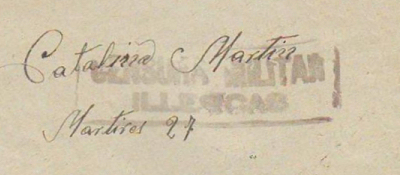 Catalina Martin
CENSURA MILITAR
ILLESCAS
Martires 27